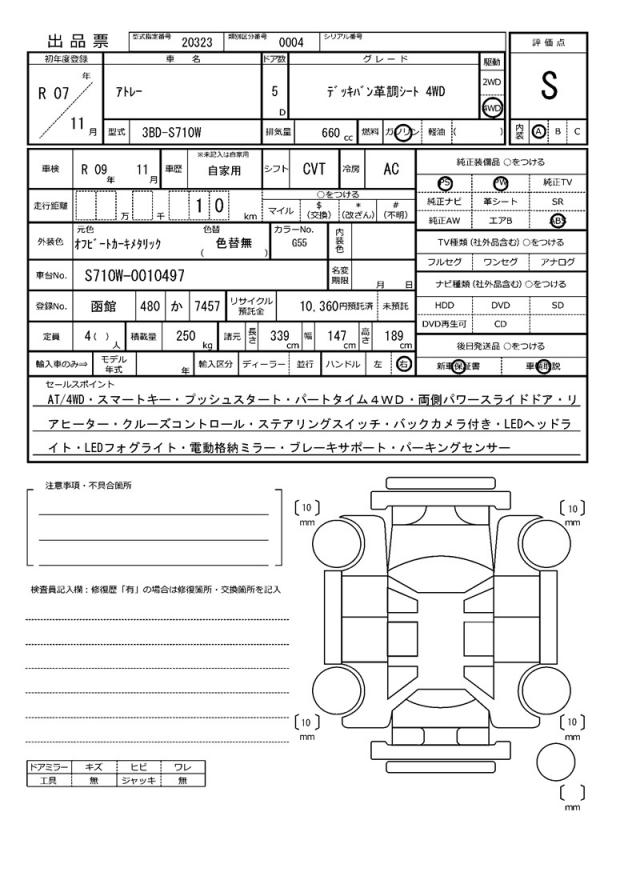 出品票 型式指定番号 20323 類別区分番号 0004 シリアル番号
初年度登録 車 名 ドア数 グレード 駆動 評価点
R 07 年 11 月 アトレー 5 D デッキバン革調シート 4WD 2WD 4WD S
型式 3BD-S710W 排気量 660 cc 燃料 ガソリン 軽油 ( ) 内装 A B C
車検 R 09 年 11 月 車歴 ※未記入は自家用 自家用 シフト CVT 冷房 AC
走行距離 万 千 1 0 km ○をつける マイル $ (交換) * (改ざん) # (不明)
外装色 元色 オフビートカーキメタリック 色替 色替無 ( ) カラーNo. G55 内装色
車台No. S710W-0010497 名変期限 月 日
登録No. 函館 480 か 7457 リサイクル預託金 10,360円預託済 未預託
定員 4( ) 人 積載量 250 kg 諸元 長さ 339 cm 幅 147 cm 高さ 189 cm
輸入車のみ⇒ モデル年式 年 輸入区分 ディーラー ・ 並行 ハンドル 左 ・ 右
純正装備品 ○をつける
PS PW 純正TV
純正ナビ 革シート SR
純正AW エアB ABS
TV種類 (社外品含む) ○をつける
フルセグ ワンセグ アナログ
ナビ種類 (社外品含む) ○をつける
HDD DVD SD
DVD再生可 CD
後日発送品 ○をつける
新車保証書 車輌取説
セールスポイント
AT/4WD・スマートキー・プッシュスタート・パートタイム4WD・両側パワースライドドア・リ
アヒーター・クルーズコントロール・ステアリングスイッチ・バックカメラ付き・LEDヘッドラ
イト・LEDフォグライト・電動格納ミラー・ブレーキサポート・パーキングセンサー
注意事項・不具合箇所
検査員記入欄：修復歴「有」の場合は修復箇所・交換箇所を記入
[10] mm [10] mm
[10] mm [10] mm
[ ] mm
ドアミラー キズ ヒビ ワレ
工具 無 ジャッキ 無